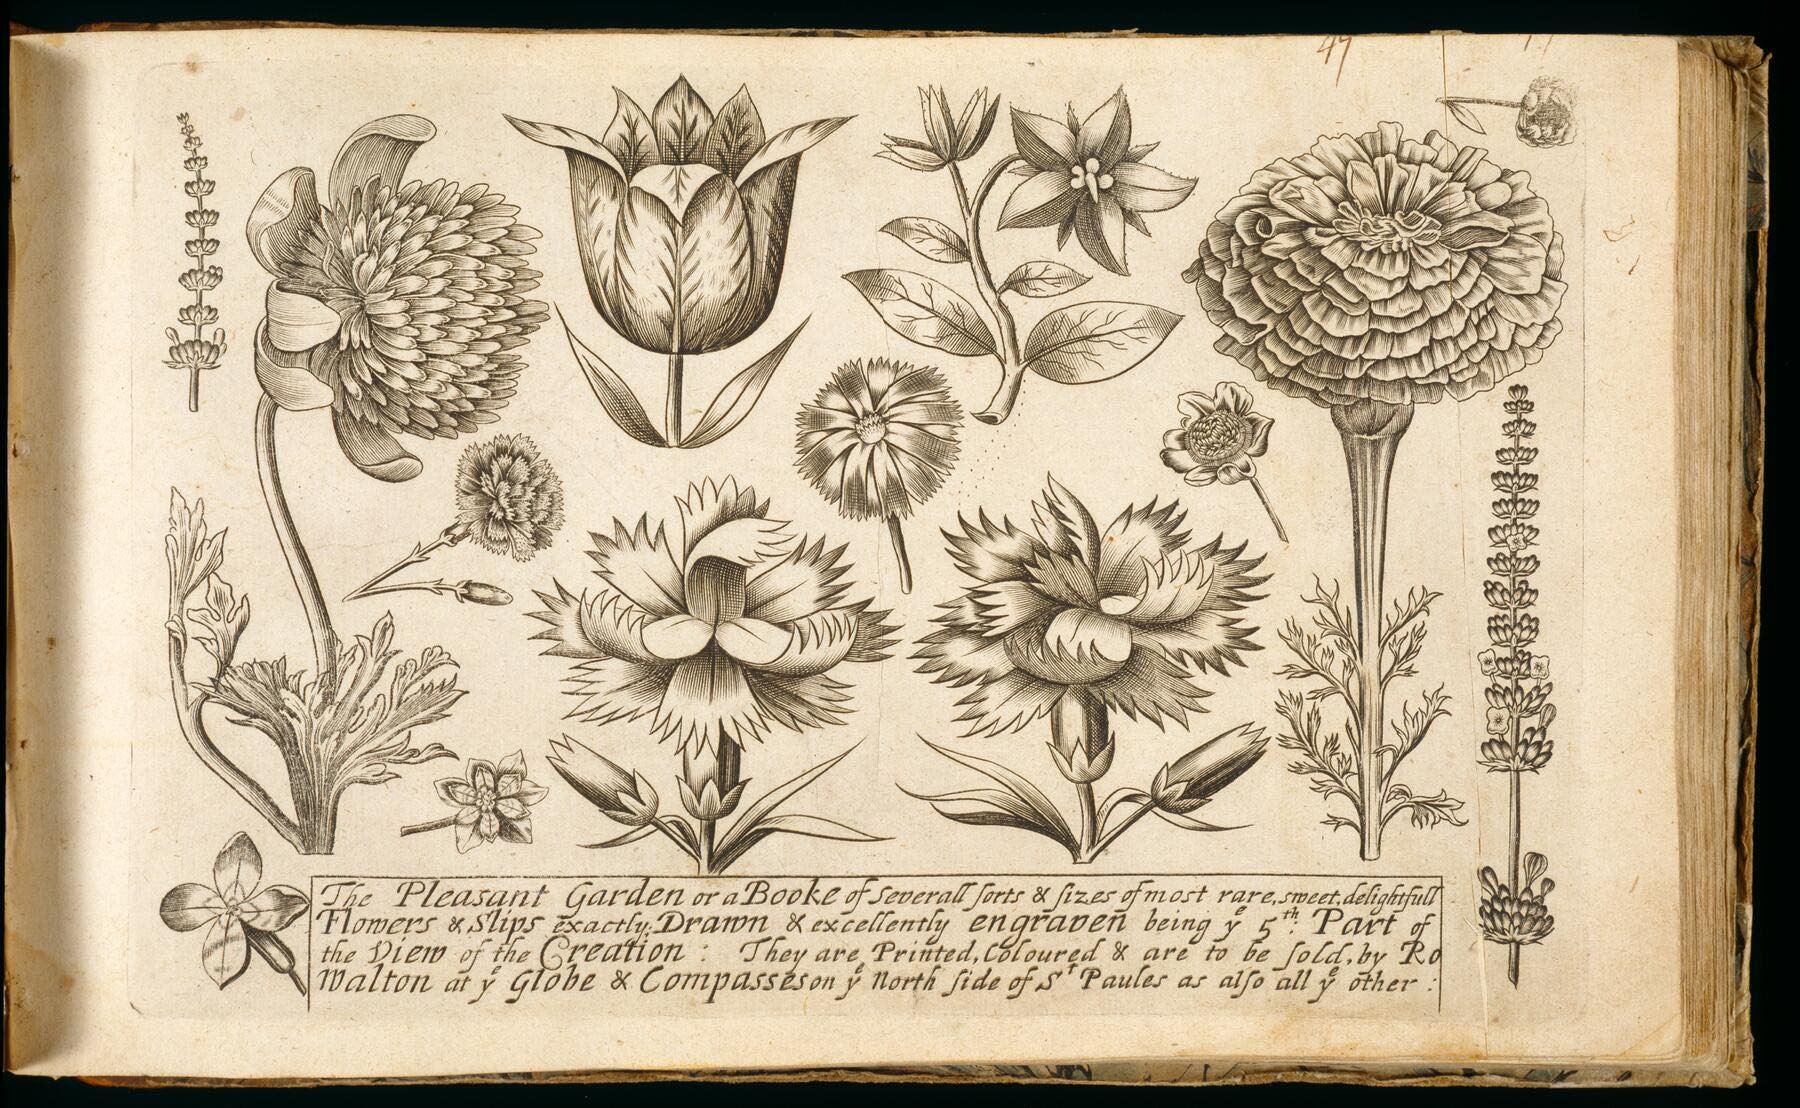 47
The Pleasant Garden or a Booke of Severall sorts & sizes of most rare, sweet, delightfull
Flowers & Slips exactly Drawn & excellently engraven being yͤ 5th: Part of
the View of the Creation : They are Printed, Coloured & are to be sold, by Ro
Walton at yͤ Globe & Compasses on yͤ North side of St Paules as also all yͤ other :